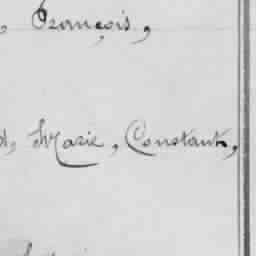 , François,
Marie, Constant,